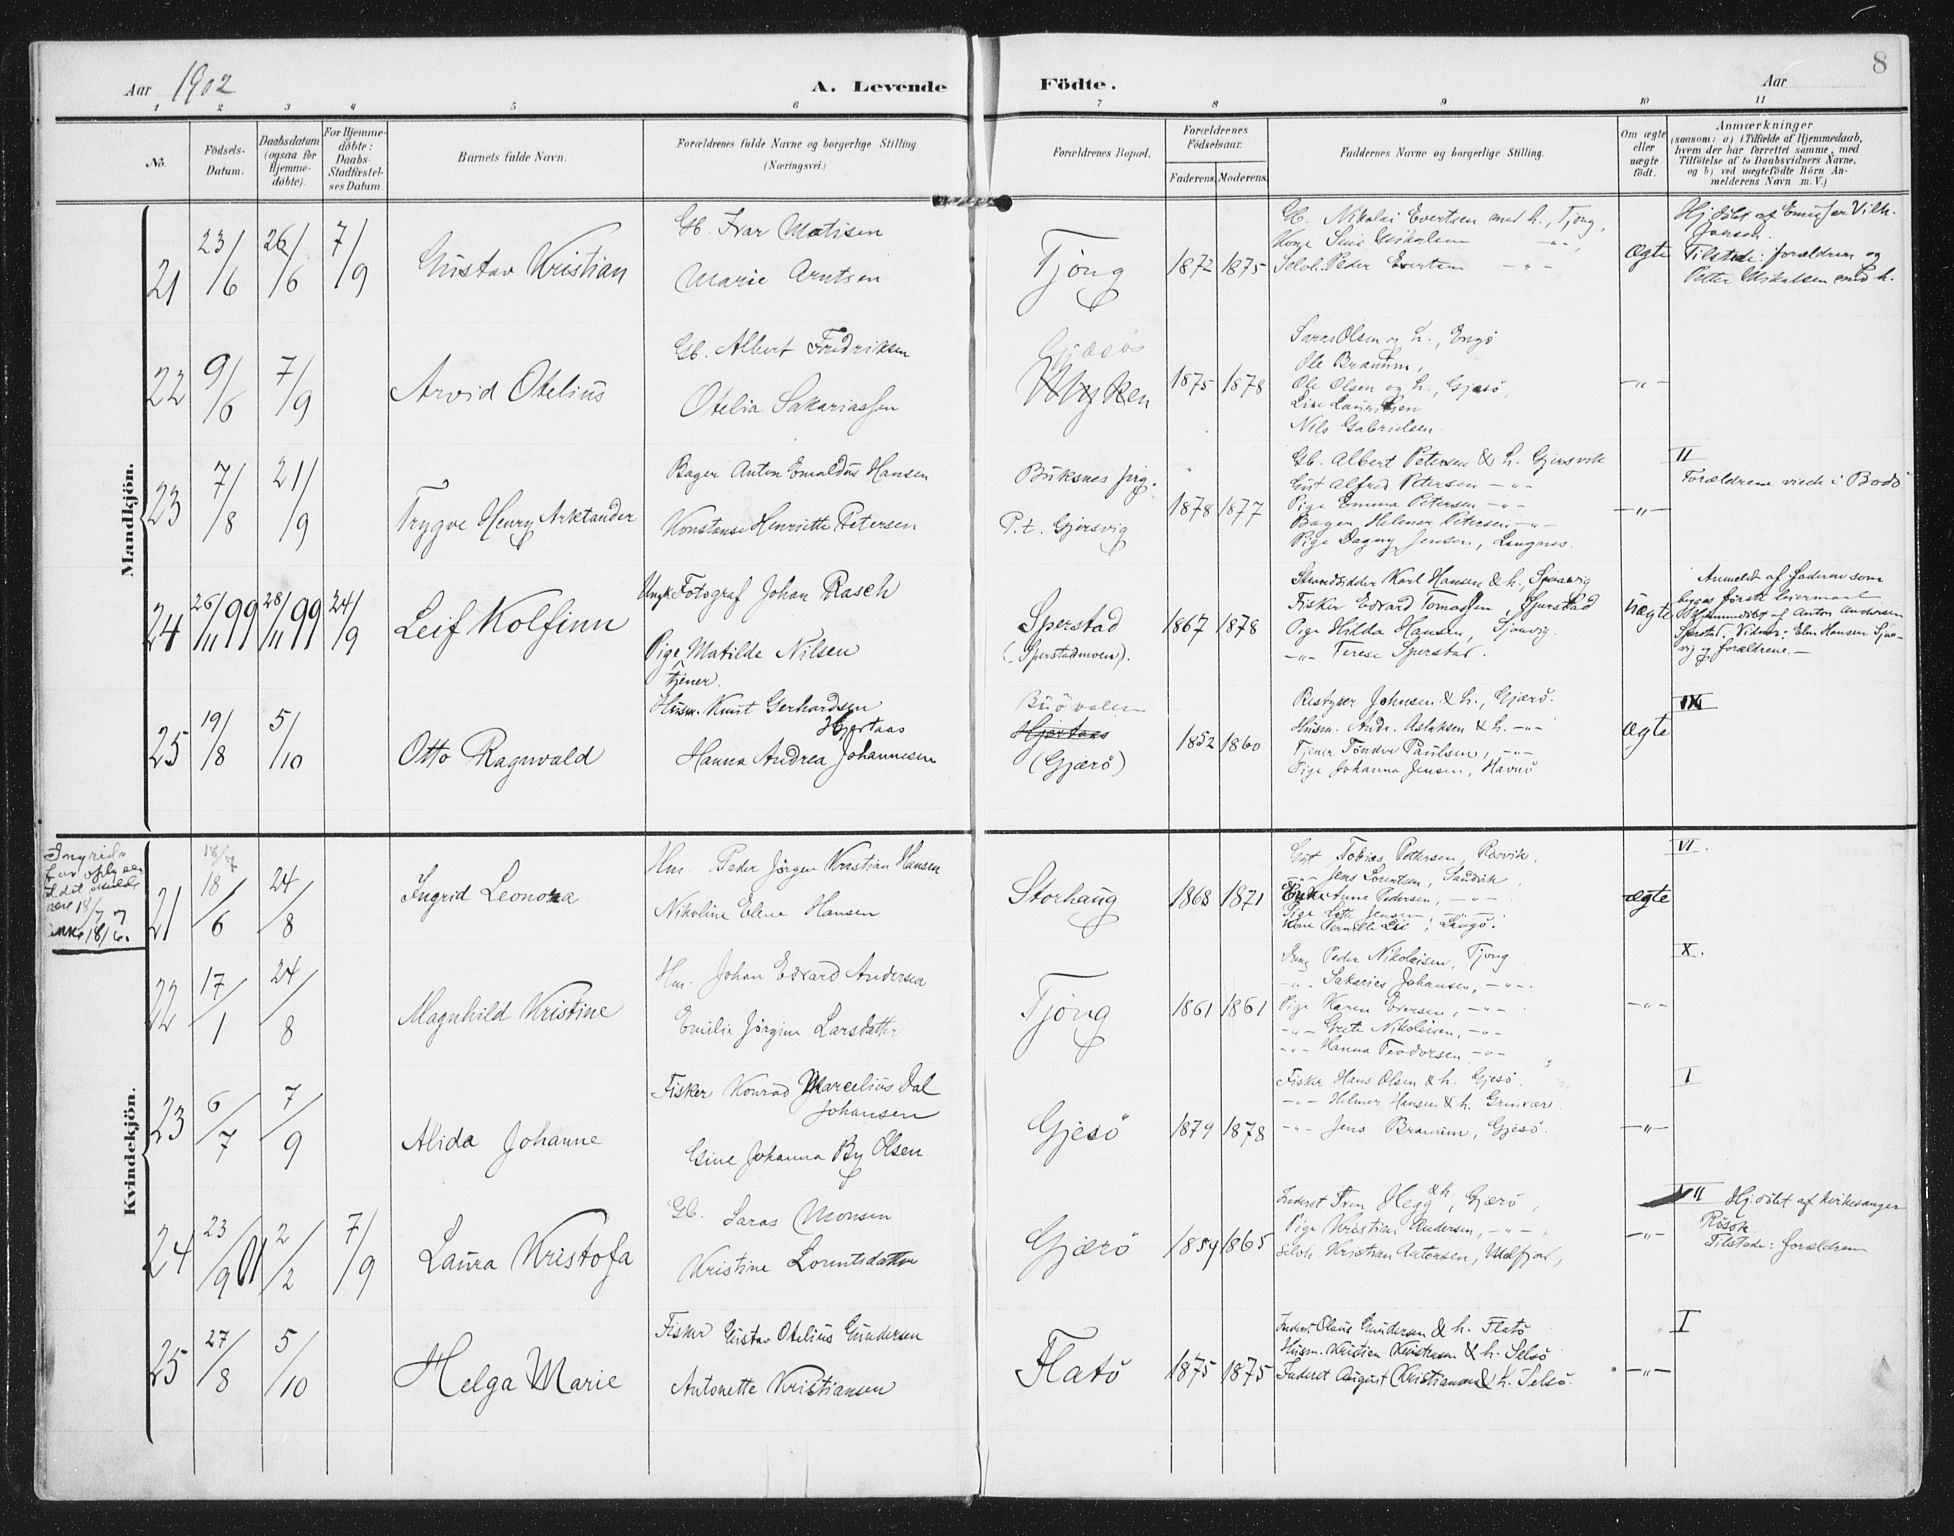 8
Aar 1902
A. Levende Födte.
Aar
1 2 3 4 5 6 7 8 9 10 11
Nö.
Födsels-Datum.
Daabsdatum (ogsaa for Hjemme-döbte).
For Hjemme-döbte: Daabs-Stadfæstel-ses Datum.
Barnets fulde Navn.
Forældrenes fulde Navne og borgerlige Stilling (Næringsvei.)
Forældrenes Bopæl.
Forældrenes Födselsaar.
Faderens. Moderens.
Faddernes Navne og borgerlige Stilling.
Om ægte eller uægte födt.
Anmærkninger
(saasom: a) i Tilfælde af Hjemmedaab, hvem der har forrettet samme, med Tilföielse af to Daabsvidners Navne, og b) ved uægtefödte Börn An-melderens Navn m. V.)
Mandkjön.
21 23/6 26/6 7/9 Gustav Kristian
Gb. Ivar Matisen
Marie Arntsen
Tjöng 1872 1875
Gb. Nikolai Evertsen med h., Tjong,
Selvh. Peder Evertsen -"-
ægte
Tilstede: forældrene og
22 9/6 7/9 Arvid Otelius
Gb. Albert Fredriksen
Otelia Sakariassen
Gjæsö
Myken
1875 1878
Saras Olsen og h., Engö
Ole Olsen og h., Gjesö,
Nils Gabrielsen.
-"-
23 7/8 21/9 Trygve Henry Arktander
Bager Anton Emaldus Hansen
Konstanse Henriette Petersen
Buksnes prg.
P.t. Gjersvig
1878 1877
Gb. Albert Petersen & h. Gjersvik
Gut Alfred Petersen -"-
Pige Emma Petersen -"-
Bager Helmer Petersen -"-
Pige Dagny Jensen, Langnes.
-"-
II
Forældrene viede i Bodö
24 26/11 99 28/11 99 24/9 Leif Kolfinn
Ungk Fotograf Johan Rasch
Pige Matilde Nilsen
tjener.
Sperstad
(Sperstadmoen).
1867 1878
Strandsidder Karl Hansen & h., Sjonvig
Fisker Edvard Tomassen, Sperstad
Pige Hilda Hansen, Sjonvig.
-"- Terese Sperstad.
uægte
Anmeldt af faderen som
begges förste leiermaal
Hjemmedöbt af Anton Andersen
Sperstad. Vidner: Elen Hansen Sjon-
vig og forældrene. -
25 19/8 5/10 Otto Ragnvald
Husm. Knut Gerhardsen
Hjartaas
Hanna Andrea Johannesen
Hjartaas
(Gjærö)
1852 1860
Ristyser Johnsen & h., Gjærö.
Husm. Andr. Aslaksen & h. -"-
Tjener Tönder Paulsen, -"-
Pige Johanna Jensen, Havnö
ægte
IX
Kvindekjön.
Ingrids
far oplyser
at det skulde
være 18/7
ikke 18/6.
21 18/7 18/6 24/8 Ingrid Leonora
Hm. Peder Jörgen Kristian Hansen
Nikoline Elene Hansen
Storhaug 1868 1871
Gut Tobias Pettersen, Rörvik.
-"- Jens Lorntsen, Sandvik,
Enke Anne Pedersen, -"-
Pige Lotte Jensen -"-
Kone Pernille Lie, Langö.
ægte
VI
22 17/1 24/8 Magnhild Kristine
Hm. Johan Edvard Andersen
Emilie Jörgine Larsdatter
Tjöng 1861 1861
Ung Peder Nikolaisen, Tjong
-"- Sakarias Johansen, -"-
Pige Karen Eversen, -"-
-"- Grete Nikolaisen, -"-
-"- Hanna Teodorsen -"-
-"-
X.
23 6/7 7/9 Alida Johanne
Fisker Konrad Marcelius Dal
Johansen
Gine Johanna By Olsen
Gjesö 1879 1878
Fisker Hans Olsen & h. Gjesö
-"- Hilmer Hansen & h. Grönvær
-"- Jens Bramm, Gjesö.
-"-
I
24 23/9 01 2/2 7/9 Laura Kristofa
Gb. Saras Monsen
Kristine Lorntsdatter
Gjærö 1859 1865
Inderst Sven Hegg & h., Gjærö,
Pige Kristian Andersen, -"-
Selvh. Kristian Antonsen, Meløfjord,
-"-
VII Hj. döbt af kirkesanger
Rösök.
Tilstede: forældrene
25 27/8 5/10 Helga Marie
Fisker Gustav Otelius Gundersen
Antonette Kristiansen
Flatö 1875 1875
Inderst Olaus Gundersen & h. Flatö
Husm. Kristian Kristensen & h. Selsö
Inderst August Kristiansen & h. Selsö.
-"-
I